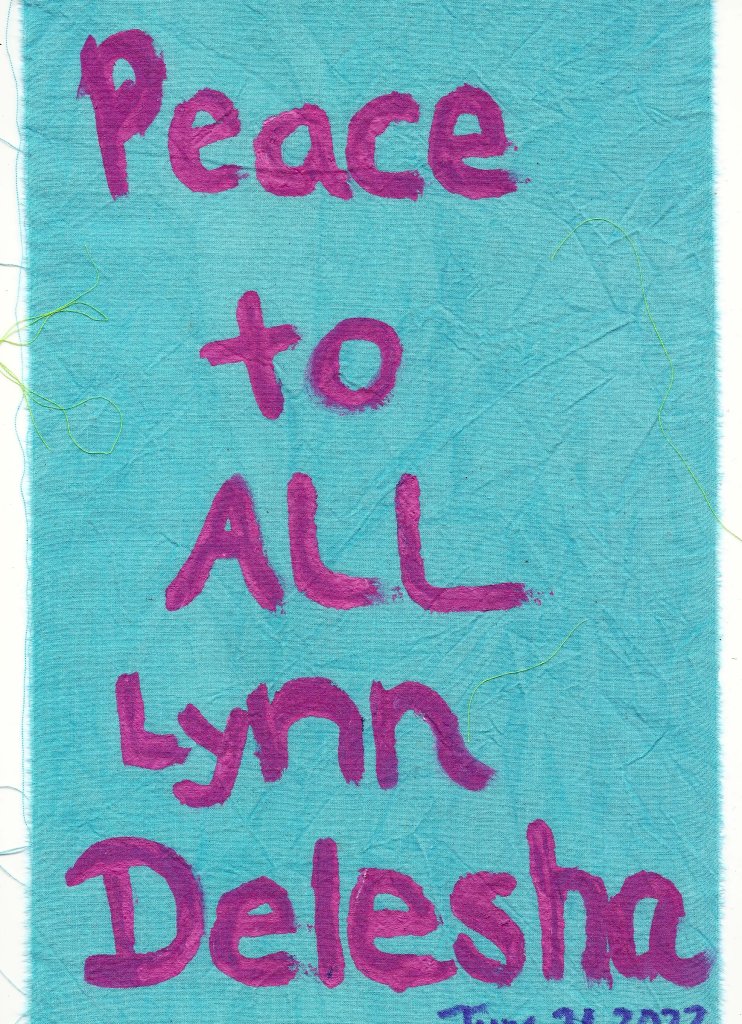 Peace
to
ALL
Lynn
Delesha
June